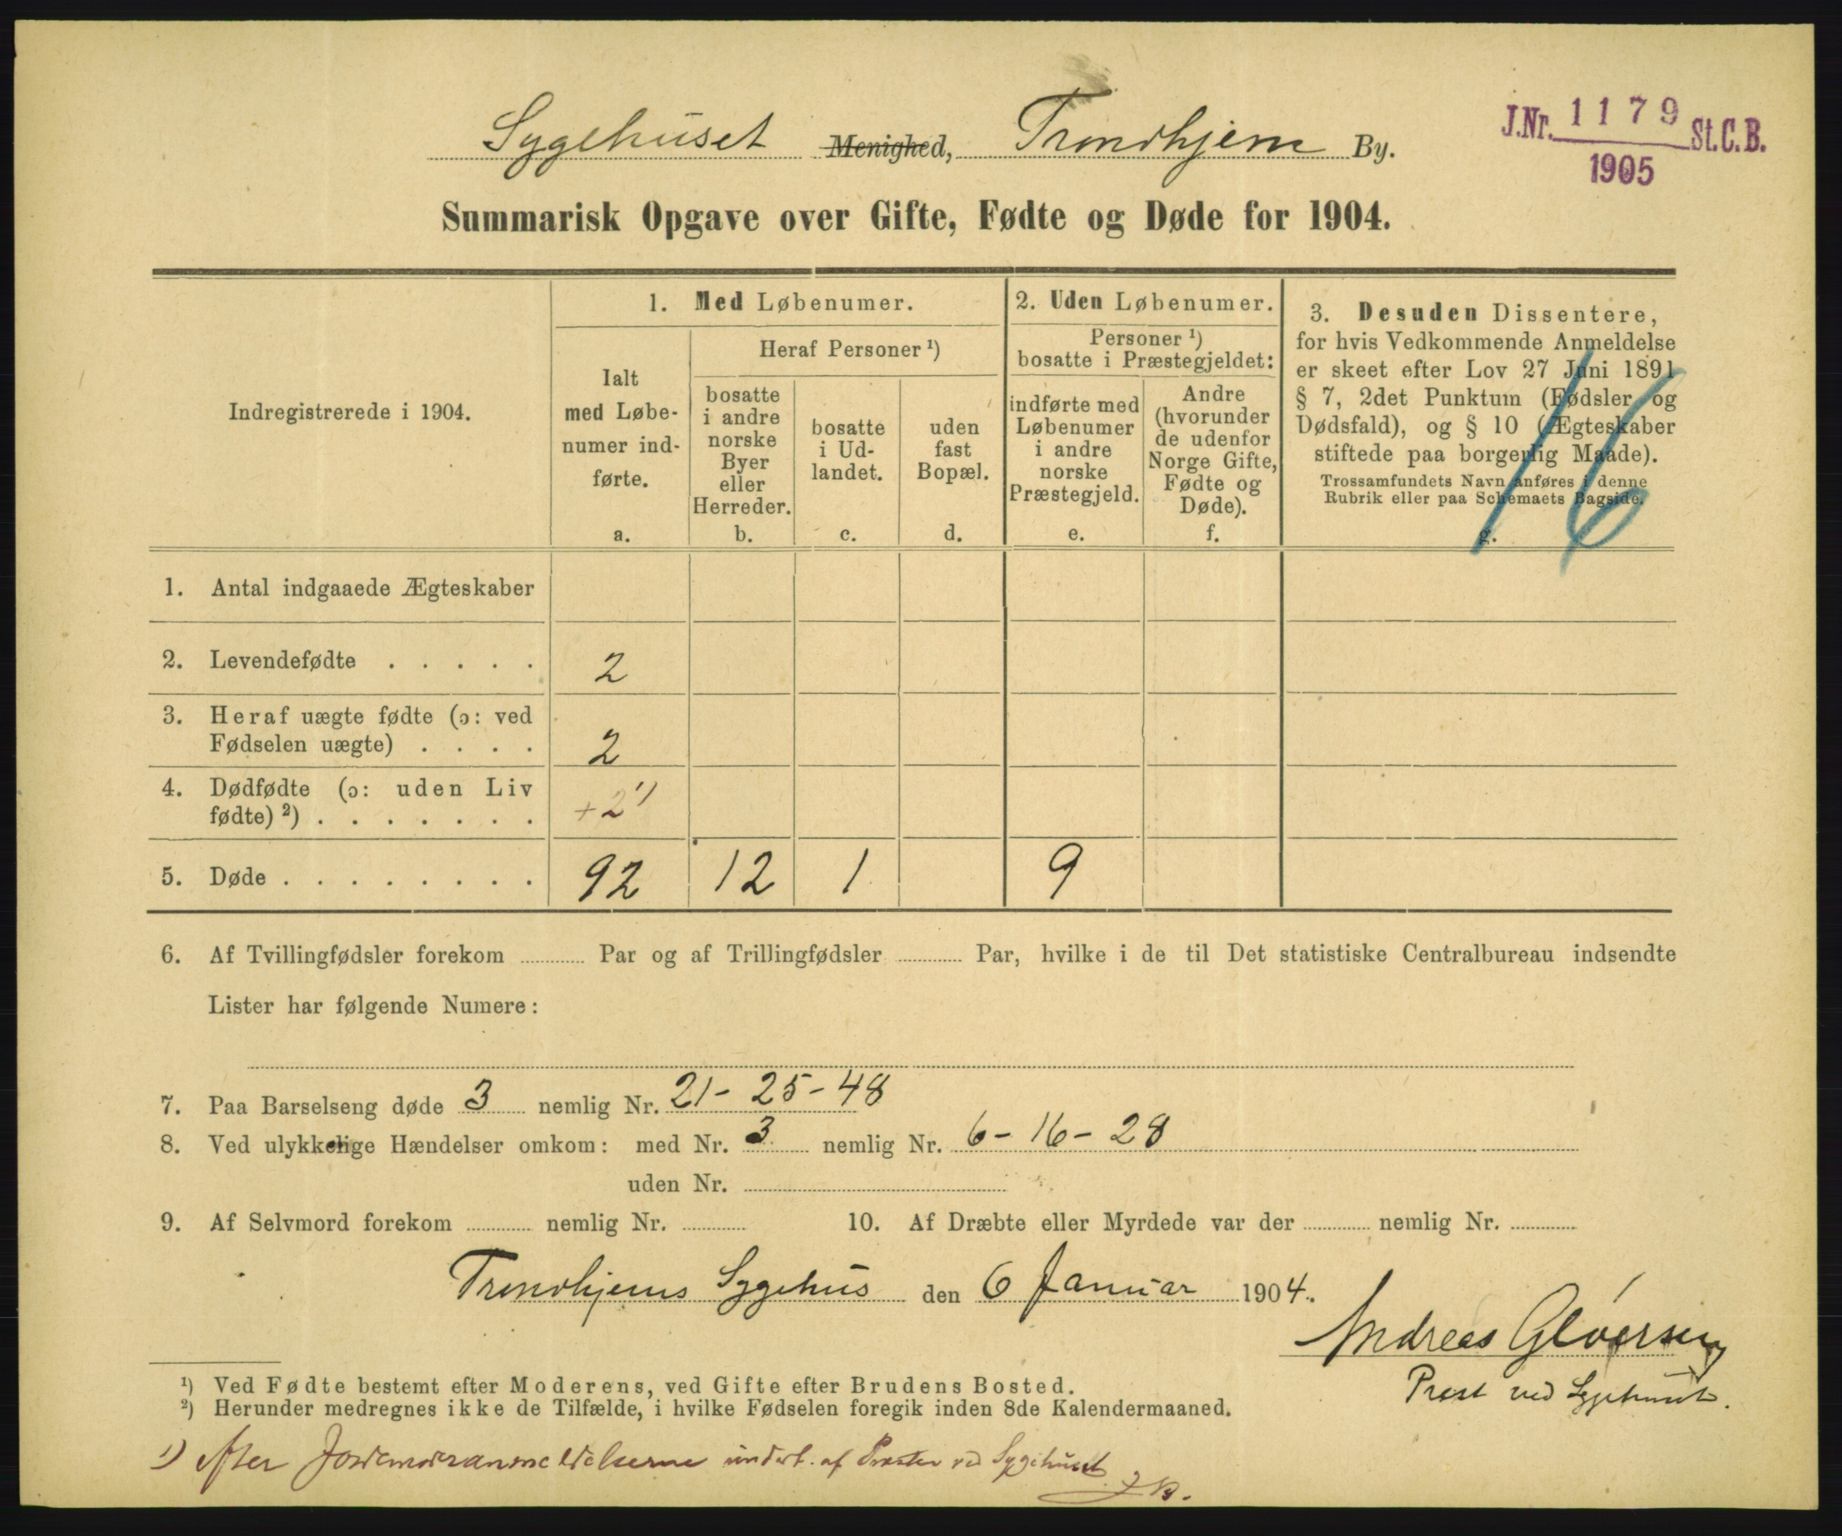 Sygehuset Menighed, Trondhjem By.
J.Nr. 1179 St.C.B.
1905
Summarisk Opgave over Gifte, Fødte og Døde for 1904.
Indregistrerede i 1904.
1. Med Løbenumer.
Ialt
med Løbe-
numer ind-
førte.
a.
Heraf Personer ¹)
bosatte
i andre
norske
Byer
eller
Herreder.
b.
bosatte
i Ud-
landet.
c.
uden
fast
Bopæl.
d.
2. Uden Løbenumer.
Personer ¹)
bosatte i Præstegjeldet:
indførte med
Løbenumer
i andre
norske
Præstegjeld.
e.
Andre
(hvorunder
de udenfor
Norge Gifte,
Fødte og
Døde).
f.
3. Desuden Dissentere,
for hvis Vedkommende Anmeldelse
er skeet efter Lov 27 Juni 1891
§ 7, 2det Punktum (Fødsler og
Dødsfald), og § 10 (Ægteskaber
stiftede paa borgerlig Maade).
Trossamfundets Navn anføres i denne
Rubrik eller paa Schemaets Bagside.
g.
16
1. Antal indgaaede Ægteskaber
2. Levendefødte . . . . . 2
3. Heraf uægte fødte (ɔ: ved
Fødselen uægte) . . . . 2
4. Dødfødte (ɔ: uden Liv
fødte) ²) . . . . . . . +2 ¹)
5. Døde . . . . . . . . 92 12 1 9
6. Af Tvillingfødsler forekom Par og af Trillingfødsler Par, hvilke i de til Det statistiske Centralbureau indsendte
Lister har følgende Numere:
7. Paa Barselseng døde 3 nemlig Nr. 21 - 25 - 48
8. Ved ulykkelige Hændelser omkom: med Nr. 3 nemlig Nr. 6 - 16 - 28
uden Nr.
9. Af Selvmord forekom nemlig Nr. 10. Af Dræbte eller Myrdede var der nemlig Nr.
Trondhjems Sygehus den 6 Januar 1904.
Andreas Gløersen
Prest ved Sygehuset.
¹) Ved Fødte bestemt efter Moderens, ved Gifte efter Brudens Bosted.
²) Herunder medregnes ikke de Tilfælde, i hvilke Fødselen foregik inden 8de Kalendermaaned.
1) efter Jordemoderanmeldelserne undert. af Præsten ved Sygehuset